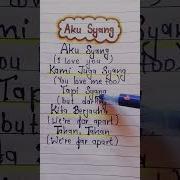 Aku Syang
Aku Syang
(I love you)
Kami Juga Syang
(You love me too)
Tapi Syang
(but darling
Kita Berjauhan
(We're far apart)
Tahan, Tahan
(We're far apart)